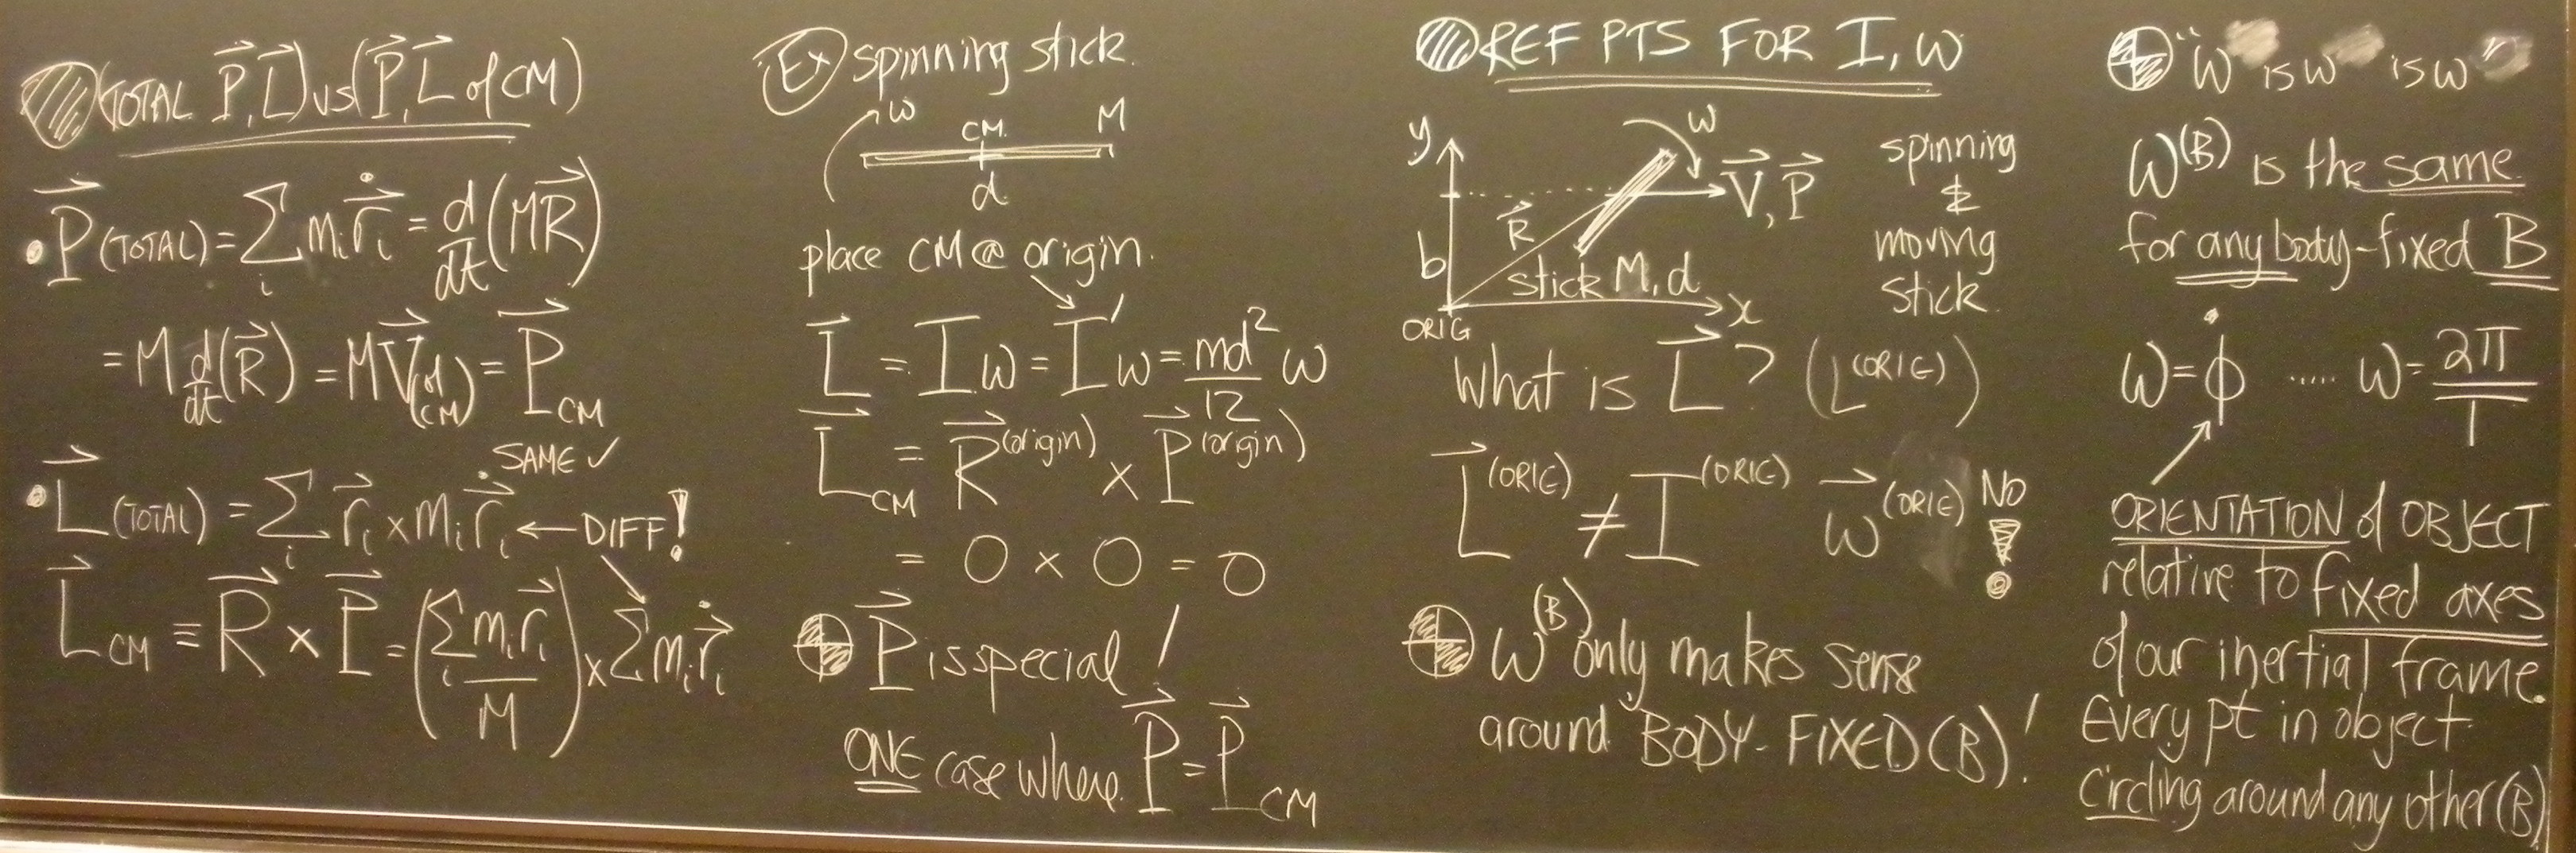 (TOTAL P⃗, L⃗) vs (P⃗, L⃗ of CM)
• P⃗ (TOTAL) = Σ_i m_i ṙ⃗_i = d/dt (MR⃗)
= M d/dt (R⃗) = M V⃗ (of CM) = P⃗_CM
SAME ✓
• L⃗ (TOTAL) = Σ_i r⃗_i × m_i ṙ⃗_i ← DIFF!
L⃗_CM ≡ R⃗ × P⃗ = (Σ_i m_i r⃗_i / M) × Σ m_i ṙ⃗_i
Ex spinning stick.
ω CM M
d
place CM @ origin.
L⃗ = I ω = I' ω = md²/12 ω
L⃗_CM = R⃗^(origin) × P⃗^(origin)
= 0 × 0 = 0
P⃗ is special!
ONE case where P⃗ = P⃗_CM
REF PTS FOR I, ω
y ω
V⃗, P⃗
R⃗
b
stick M, d
x
ORIG
spinning
&
moving
stick.
What is L⃗? (L^(ORIG))
L⃗^(ORIG) ≠ I^(ORIG) ω⃗^(ORIG) NO!
ω^(B) only makes sense
around BODY-FIXED (B)!
"ω is ω is ω"
ω^(B) is the same
for any body-fixed B
ω = φ̇ ..... ω = 2π/T
ORIENTATION of OBJECT
relative to fixed axes
of our inertial frame.
Every pt in object
circling around any other (B)